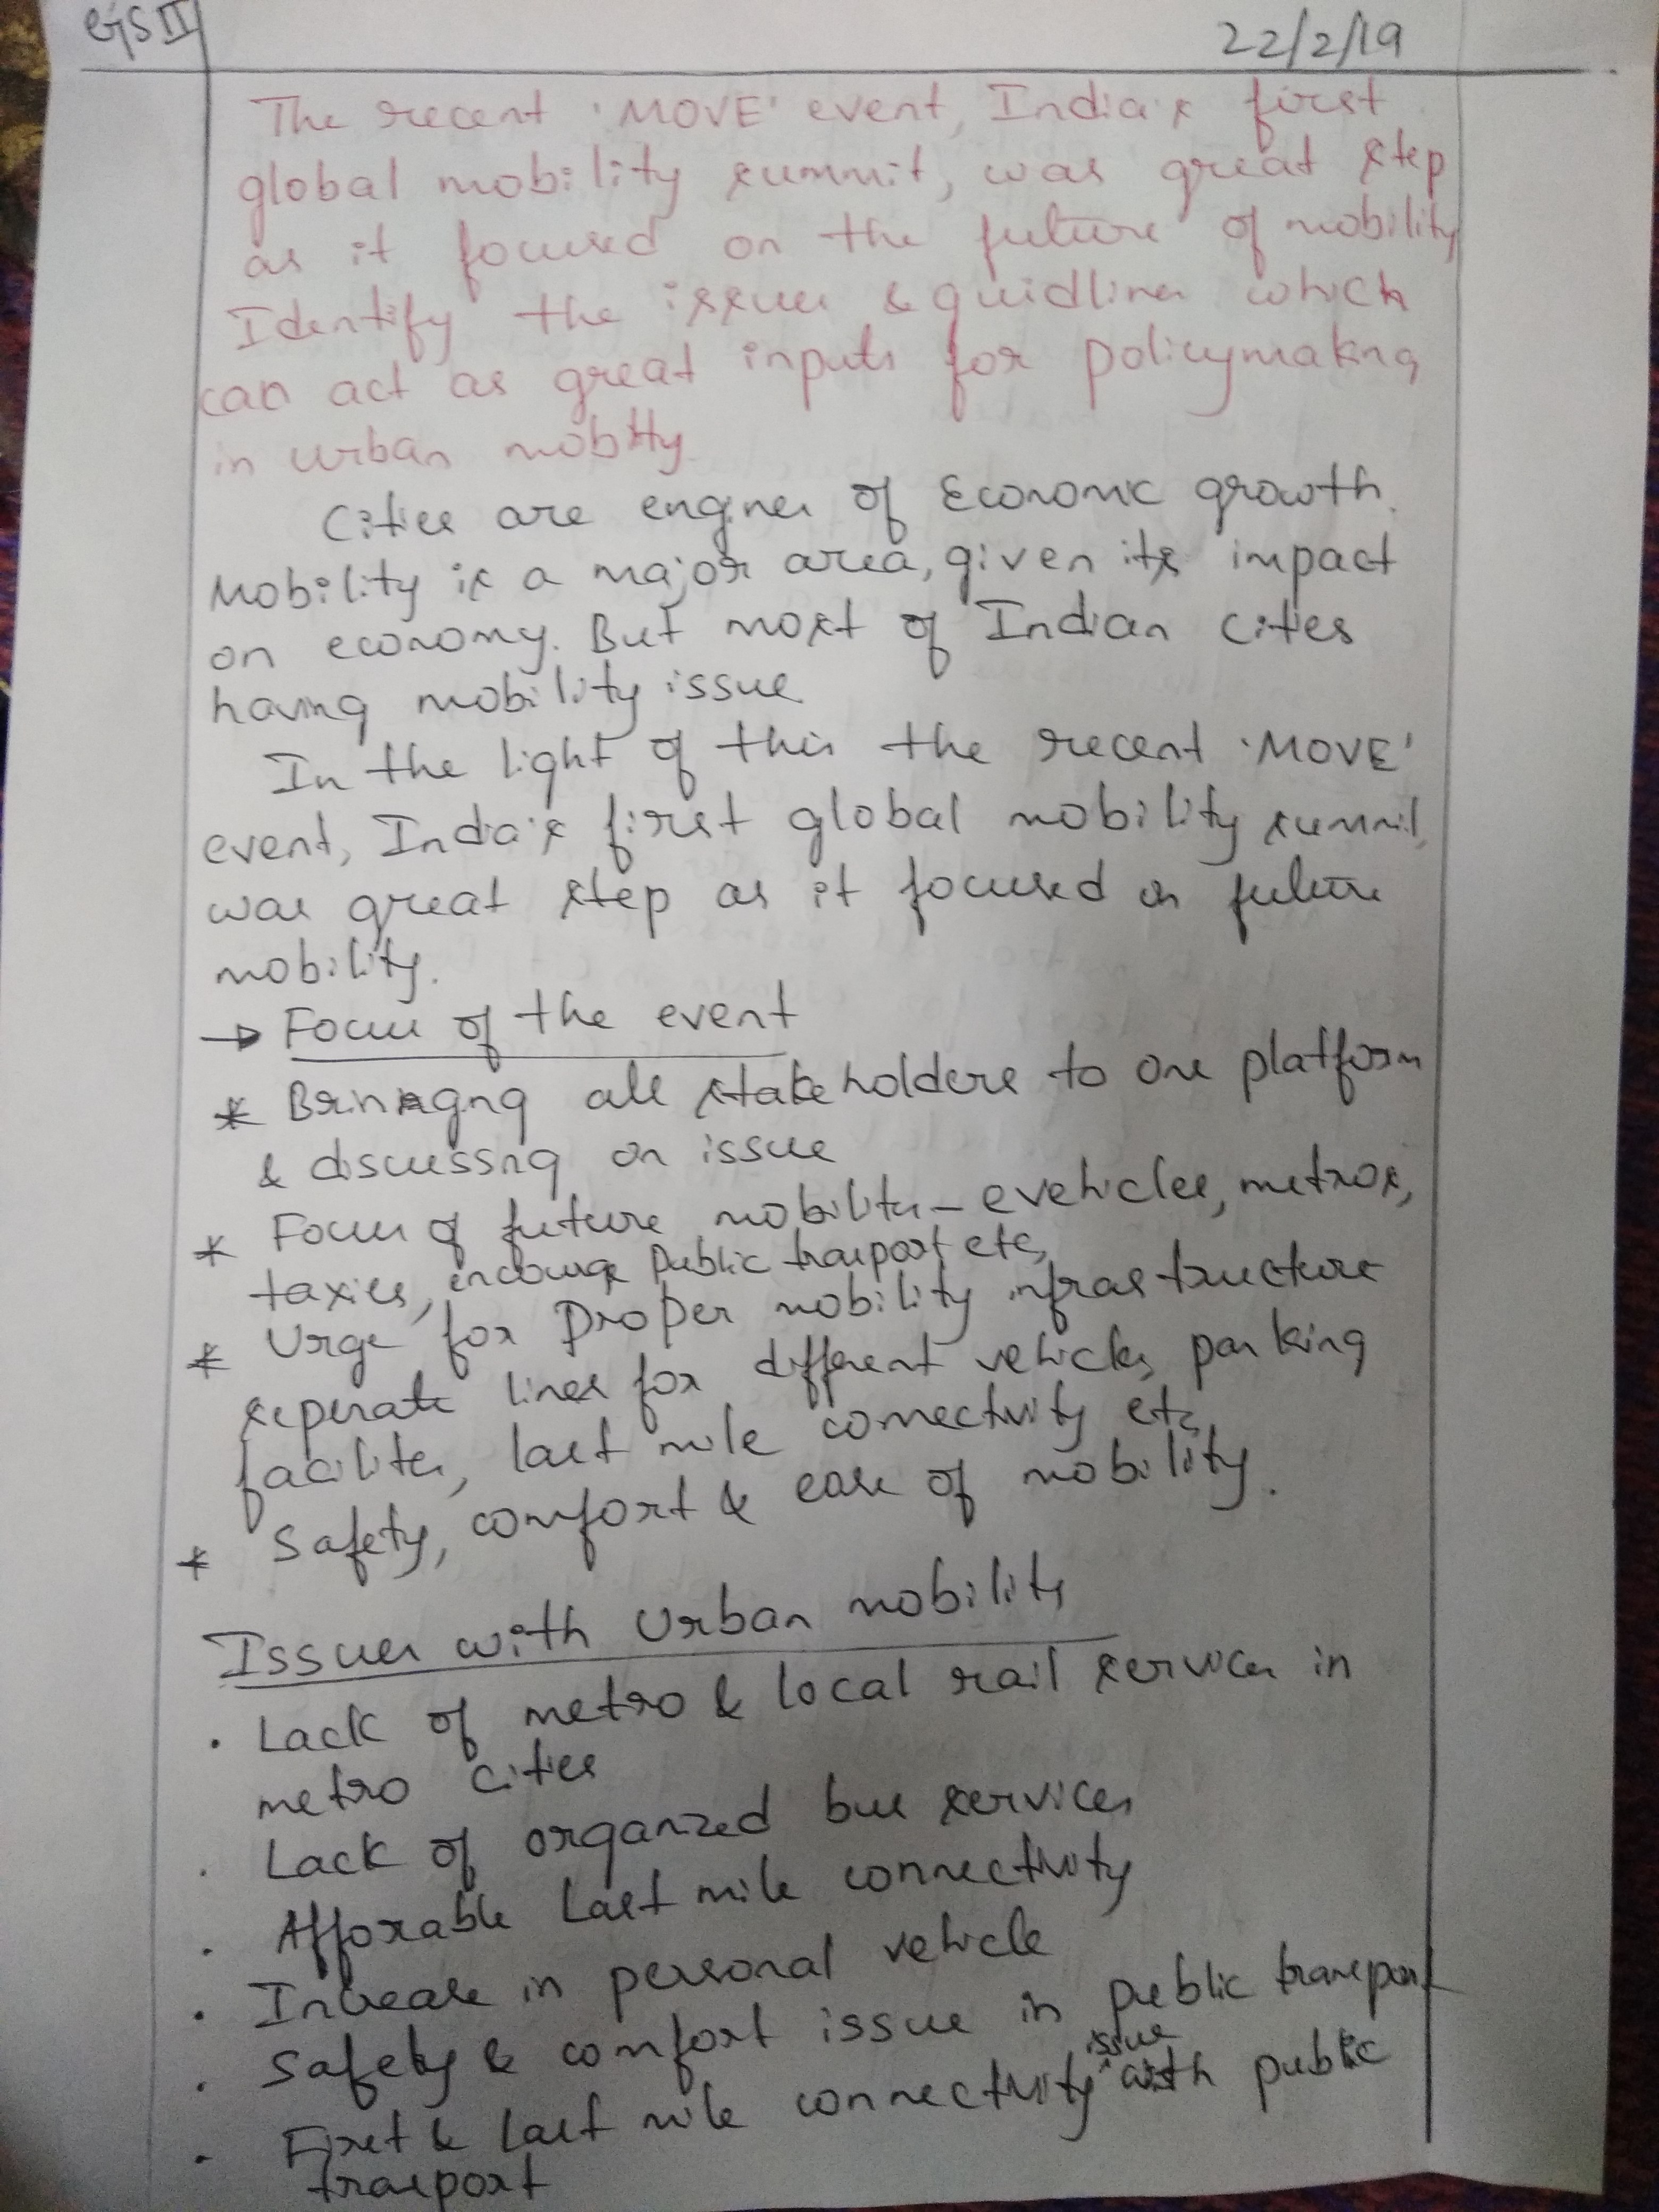 GS II
22/2/19
The recent 'MOVE' event, India's first
global mobility summit, was great step
as it focused on the future of mobility
Identify the issues & guidlines which
can act as great inputs for policymaking
in urban mobitty.
Cities are engines of Economic growth.
Mobility is a major area, given its impact
on economy. But most of Indian cities
having mobility issue
In the light of this the recent 'MOVE'
event, India's first global mobility summit,
was great step as it focused on future
mobility.
→ Focus of the event
* Bringing all stakeholders to one platform
& discussing on issue
* Focus of future mobility - evehicles, metros,
taxies, encourage public transport etc,
* Urge for Proper mobility infrastructure
seperate lines for different vehicles, parking
facilities, last mile connectivity etc,
* Safety, comfort & ease of mobility.
Issues with Urban mobility
. Lack of metro & local rail services in
metro cities
. Lack of organized bus services
. Afforable Last mile connectivity
. Increase in personal vehicle
. Safety & comfort issue in public transport
. First & last mile connectivity issue with public
trasport